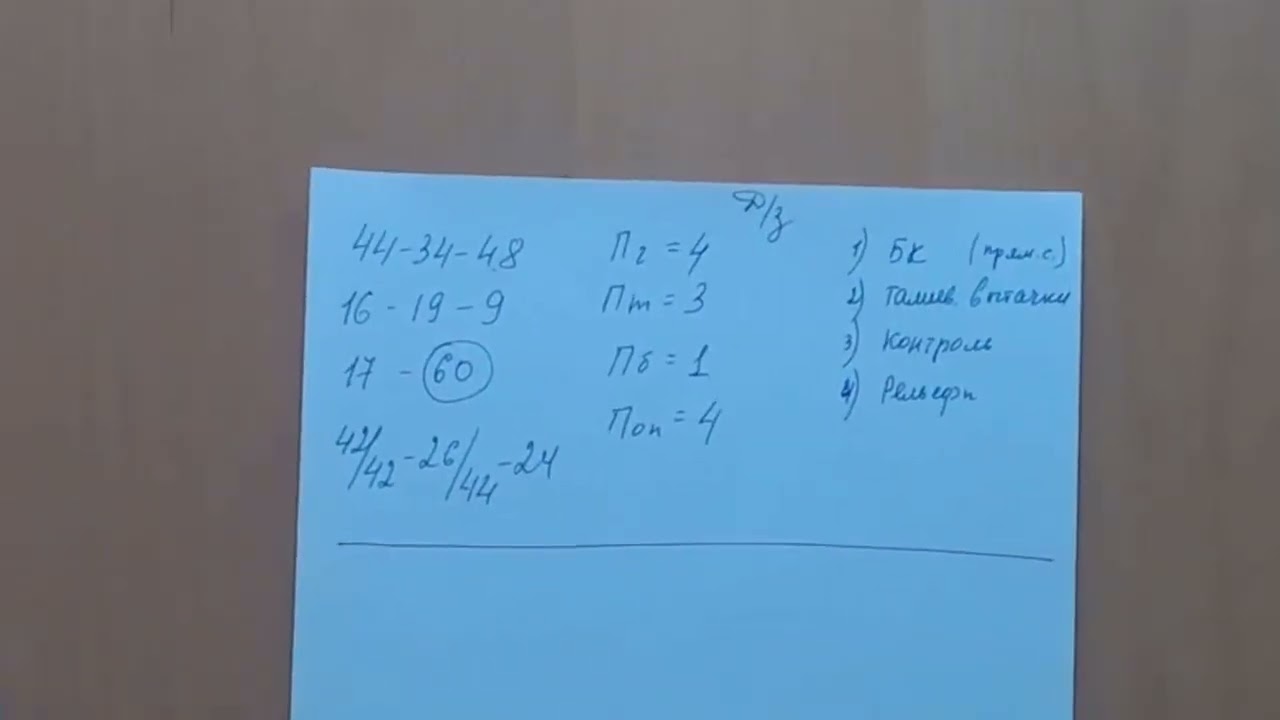 Д/з
44-34-48
16-19-9
17-60
42/42-26/44-24
Пг = 4
Пт = 3
Пб = 1
Поп = 4
1) БК (прям.с.)
2) Талиев. вытачки
3) Контроль
4) Рельефы